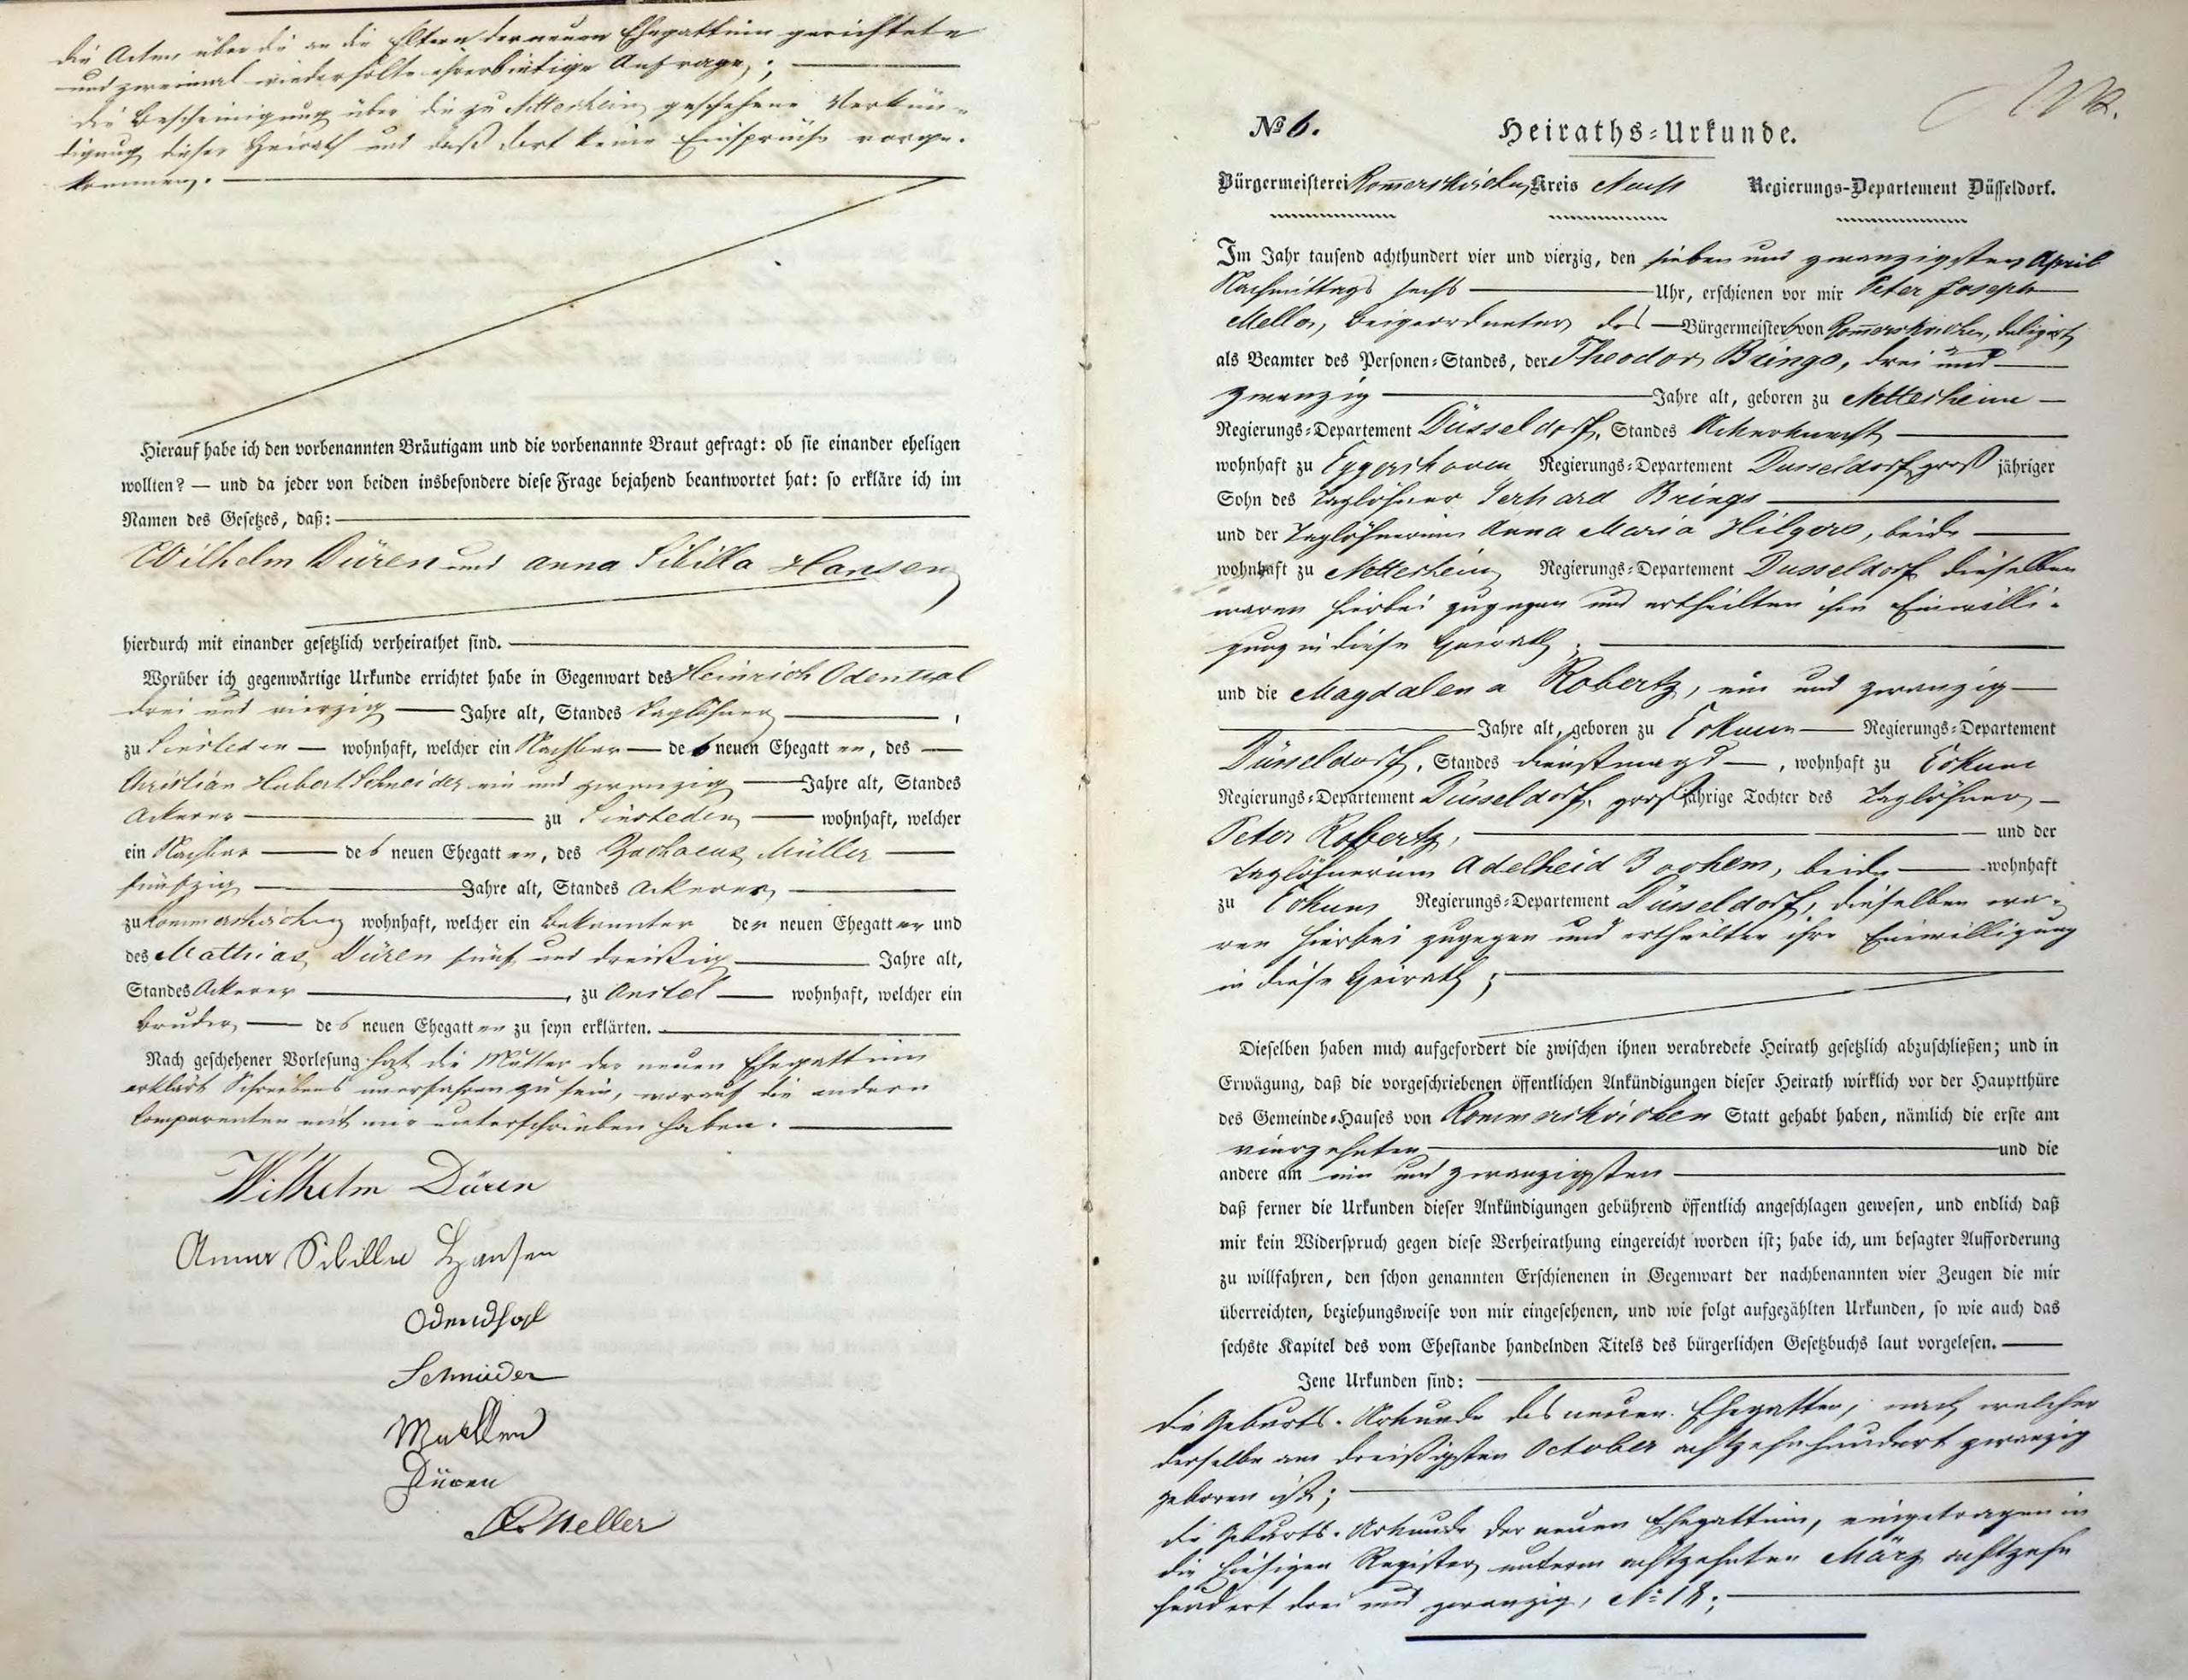 die Acten über die an die Eltern der neuen Ehegattinn gerichtete
und zweimal wiederholte ehrerbietige Anfrage; —
die Bescheinigung über die zu Nettesheim geschehene Verkün-
digung dieser Heirath und daß dort keine Einsprüche vorge-
kommen. —
Hierauf habe ich den vorbenannten Bräutigam und die vorbenannte Braut gefragt: ob sie einander eheligen
wollten? — und da jeder von beiden insbesondere diese Frage bejahend beantwortet hat: so erkläre ich im
Namen des Gesetzes, daß: —
Wilhelm Düren und Anna Sibilla Hansen
hierdurch mit einander gesetzlich verheirathet sind. —
Worüber ich gegenwärtige Urkunde errichtet habe in Gegenwart des Heinrich Odenthal
drei und vierzig — Jahre alt, Standes Taglöhner —,
zu Sinsteden — wohnhaft, welcher ein Nachbar — der neuen Ehegatten, des —
Christian Hubert Schneider ein und zwanzig — Jahre alt, Standes
Ackerer — zu Sinsteden — wohnhaft, welcher
ein Nachbar — der neuen Ehegatten, des Zachaeus Müller —
fünfzig — Jahre alt, Standes Ackerer, —
zu Rommerskirchen wohnhaft, welcher ein Bekannter der neuen Ehegatten und
des Mathias Düren fünf und dreißig — Jahre alt,
Standes Ackerer —, zu Anstel — wohnhaft, welcher ein
Bruder, — des neuen Ehegatten zu seyn erklärten. —
Nach geschehener Vorlesung hat die Mutter der neuen Ehegattinn
erklärt Schreibens unerfahren zu sein, worauf die andern
Comparenten mit mir unterschrieben haben. —
Wilhelm Düren
Anna Sibilla Hansen
Odendhal
Schnieder
Muellen
Düren
Meller
№ 6.
Heiraths-Urkunde.
Bürgermeisterei Rommerskirchen, Kreis Neuss Regierungs-Departement Düsseldorf.
Im Jahr tausend achthundert vier und vierzig, den sieben und zwanzigsten April
Nachmittags sechs — Uhr, erschienen vor mir Peter Joseph
Meller, Beigeordneter des — Bürgermeisters von Rommerskirchen, deligirt
als Beamter des Personen-Standes, der Theodor Brings, drei und —
zwanzig — Jahre alt, geboren zu Nettesheim —
Regierungs-Departement Düsseldorf, Standes Ackerknecht —
wohnhaft zu Eggershoven Regierungs-Departement Dusseldorf, groß jähriger
Sohn des Taglöhner Gerhard Brings —
und der Taglöhnerinn Anna Maria Hilgers, beide —
wohnhaft zu Nettesheim Regierungs-Departement Dusseldorf dieselben
waren hierbei zugegen und ertheilten ihre Einwilli-
gung in diese Heirath; —
und die Magdalena Robertz, ein und zwanzig —
— Jahre alt, geboren zu Eckum — Regierungs-Departement
Düsseldorf, Standes Dienstmagd —, wohnhaft zu Eckum
Regierungs-Departement Düsseldorf, groß jährige Tochter des Taglöhner —
Peter Robertz, — und der
Taglöhnerinn Adelheid Bochem, beide — wohnhaft
zu Eckum Regierungs-Departement Düsseldorf, dieselben wa-
ren hierbei zugegen und ertheilten ihre Einwilligung
in diese Heirath; —
Dieselben haben mich aufgefordert die zwischen ihnen verabredete Heirath gesetzlich abzuschließen; und in
Erwägung, daß die vorgeschriebenen öffentlichen Ankündigungen dieser Heirath wirklich vor der Hauptthüre
des Gemeinde-Hauses von Rommerskirchen Statt gehabt haben, nämlich die erste am
vierzehnten — und die
andere am ein und zwanzigsten —
daß ferner die Urkunden dieser Ankündigungen gebührend öffentlich angeschlagen gewesen, und endlich daß
mir kein Widerspruch gegen diese Verheirathung eingereicht worden ist; habe ich, um besagter Aufforderung
zu willfahren, den schon genannten Erschienenen in Gegenwart der nachbenannten vier Zeugen die mir
überreichten, beziehungsweise von mir eingesehenen, und wie folgt aufgezählten Urkunden, so wie auch das
sechste Kapitel des vom Ehestande handelnden Titels des bürgerlichen Gesetzbuchs laut vorgelesen. —
Jene Urkunden sind: —
die Geburts-Urkunde des neuen Ehegatten, nach welcher
derselbe am dreißigsten October achtzehnhundert zwanzig
geboren ist; —
die Geburts-Urkunde der neuen Ehegattinn, eingetragen in
die hiesigen Register unterm achtzehnten März achtzehn
hundert drei und zwanzig, № 18; —